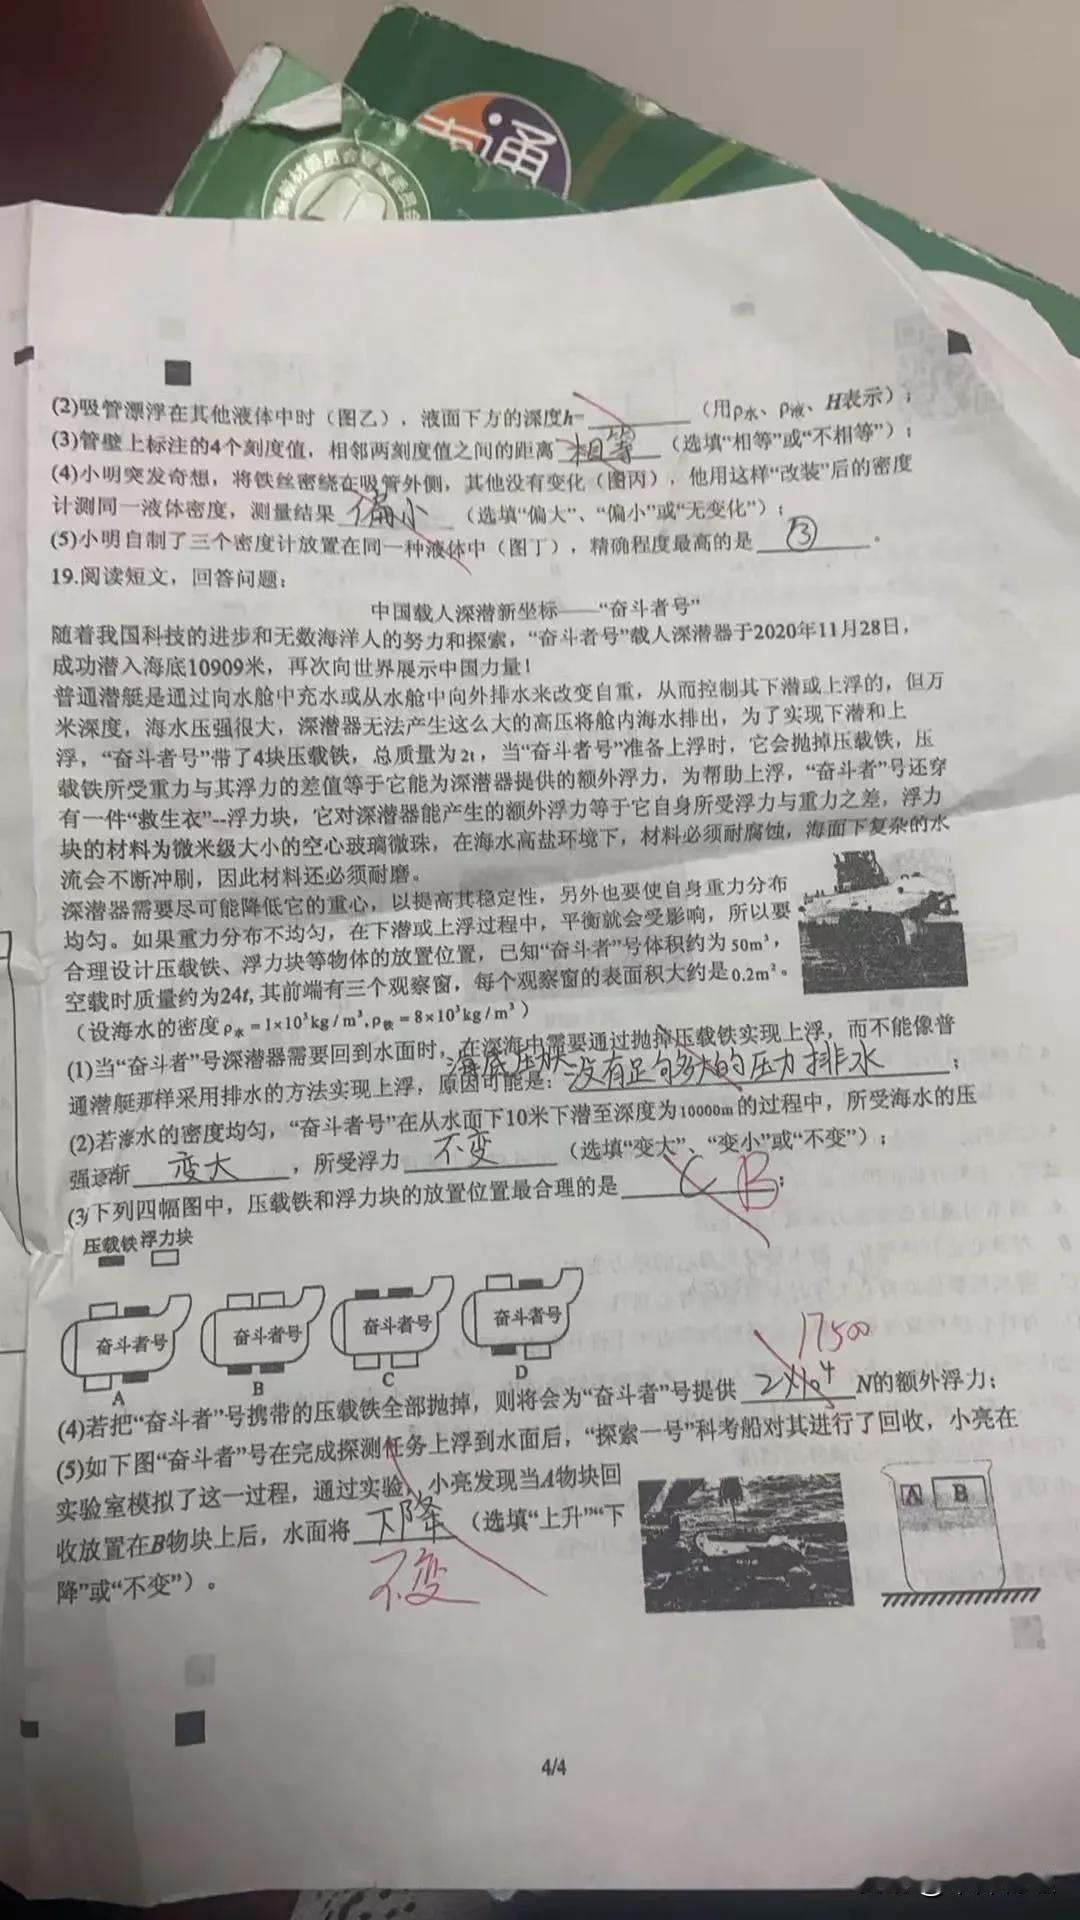 通
(2)吸管漂浮在其他液体中时（图乙），液面下方的深度h=________（用ρ水、ρ液、H表示）；
(3)管壁上标注的4个刻度值，相邻两刻度值之间的距离 相等 （选填“相等”或“不相等”）；
(4)小明突发奇想，将铁丝密绕在吸管外侧，其他没有变化（图丙），他用这样“改装”后的密度
计测同一液体密度，测量结果 偏小 （选填“偏大”、“偏小”或“无变化”）；
(5)小明自制了三个密度计放置在同一种液体中（图丁），精确程度最高的是 ③ 。
19.阅读短文，回答问题：
中国载人深潜新坐标——“奋斗者号”
随着我国科技的进步和无数海洋人的努力和探索，“奋斗者号”载人深潜器于2020年11月28日，
成功潜入海底10909米，再次向世界展示中国力量！
普通潜艇是通过向水舱中充水或从水舱中向外排水来改变自重，从而控制其下潜或上浮的，但万
米深度，海水压强很大，深潜器无法产生这么大的高压将舱内海水排出，为了实现下潜和上
浮，“奋斗者号”带了4块压载铁，总质量为2t，当“奋斗者号”准备上浮时，它会抛掉压载铁，压
载铁所受重力与其浮力的差值等于它能为深潜器提供的额外浮力，为帮助上浮，“奋斗者”号还穿
有一件“救生衣”--浮力块，它对深潜器能产生的额外浮力等于它自身所受浮力与重力之差，浮力
块的材料为微米级大小的空心玻璃微珠，在海水高盐环境下，材料必须耐腐蚀，海面下复杂的水
流会不断冲刷，因此材料还必须耐磨。
深潜器需要尽可能降低它的重心，以提高其稳定性，另外也要使自身重力分布
均匀。如果重力分布不均匀，在下潜或上浮过程中，平衡就会受影响，所以要
合理设计压载铁、浮力块等物体的放置位置，已知“奋斗者”号体积约为50m³，
空载时质量约为24t,其前端有三个观察窗，每个观察窗的表面积大约是0.2m²。
（设海水的密度ρ水=1×10³kg/m³,ρ铁=8×10³kg/m³）
(1)当“奋斗者”号深潜器需要回到水面时，在深海中需要通过抛掉压载铁实现上浮，而不能像普
海底压
通潜艇那样采用排水的方法实现上浮，原因可能是：没有足够大的压力排水；
(2)若海水的密度均匀，“奋斗者号”在从水面下10米下潜至深度为10000m的过程中，所受海水的压
强逐渐 变大 ，所受浮力 不变 （选填“变大”、“变小”或“不变”）；
(3)下列四幅图中，压载铁和浮力块的放置位置最合理的是 C B；
压载铁 浮力块
奋斗者号 奋斗者号 奋斗者号 奋斗者号
A B C D
17500
(4)若把“奋斗者”号携带的压载铁全部抛掉，则将会为“奋斗者”号提供 2×10⁴ N的额外浮力；
(5)如下图“奋斗者”号在完成探测任务上浮到水面后，“探索一号”科考船对其进行了回收，小亮在
实验室模拟了这一过程，通过实验，小亮发现当A物块回
收放置在B物块上后，水面将 下降 （选填“上升”“下
降”或“不变”）。
不变
A B
4/4